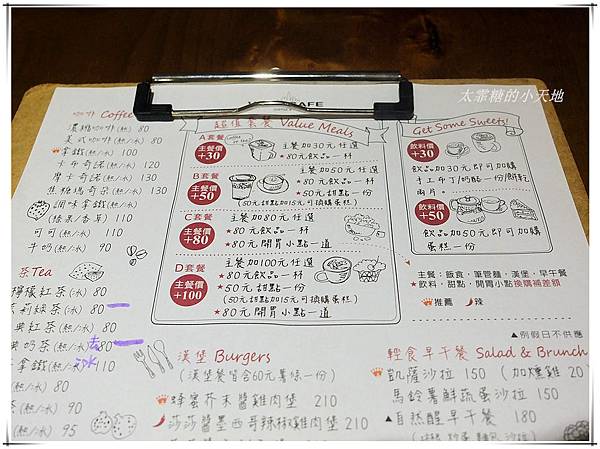 太霏糖的小天地
CAFE
咖啡 Coffee
濃縮咖啡(熱) 80
美式咖啡(熱/冰) 80
拿鐵(熱/冰) 100
卡布奇諾(熱/冰) 120
摩卡奇諾(熱/冰) 130
焦糖瑪奇朵(熱/冰) 130
調味拿鐵(熱/冰)
(榛果/香草) 110
可可(熱/冰) 110
牛奶(熱/冰) 90
茶Tea
檸檬紅茶(冰) 80
茉莉綠茶(熱/冰) 80
紅茶(熱/冰) 80
奶茶(熱/冰) 80
拿鐵(熱/冰) 110
(熱/冰) 80
茶(熱/冰) 90
(熱/冰) 95
超值套餐 Value Meals
A套餐
主餐價
+30
主餐加30元任選
★80元飲品一杯
B套餐
主餐價
+50
主餐加50元任選
★80元飲品一杯
★50元甜點一份
(50元甜點加15元可換購蛋糕)
C套餐
主餐價
+80
主餐加80元任選
★80元飲品一杯
★80元開胃小點一道
D套餐
主餐價
+100
主餐加100元任選
★80元飲品一杯
★50元甜點一份
(50元甜點加15元可換購蛋糕)
★80元開胃小點一道
Get Some Sweets!
飲料價
+30
飲品加30元即可加購
手工布丁/奶酪一份/餅乾
兩片。
飲料價
+50
飲品加50元即可加購
蛋糕一份
主餐：飯食，筆管麵，漢堡，早午餐
★飲料，甜點，開胃小點換購補差額
推薦 辣
漢堡 Burgers
(漢堡餐皆含60元薯條一份)
蜂蜜芥末醬雞肉堡 210
莎莎醬墨西哥辣椒雞肉堡 210
▲例假日不供應
輕食早午餐 Salad & Brunch
凱薩沙拉 150 (加燻雞 20
馬鈴薯鮮蔬蛋沙拉 150
▲自然醒早午餐 180